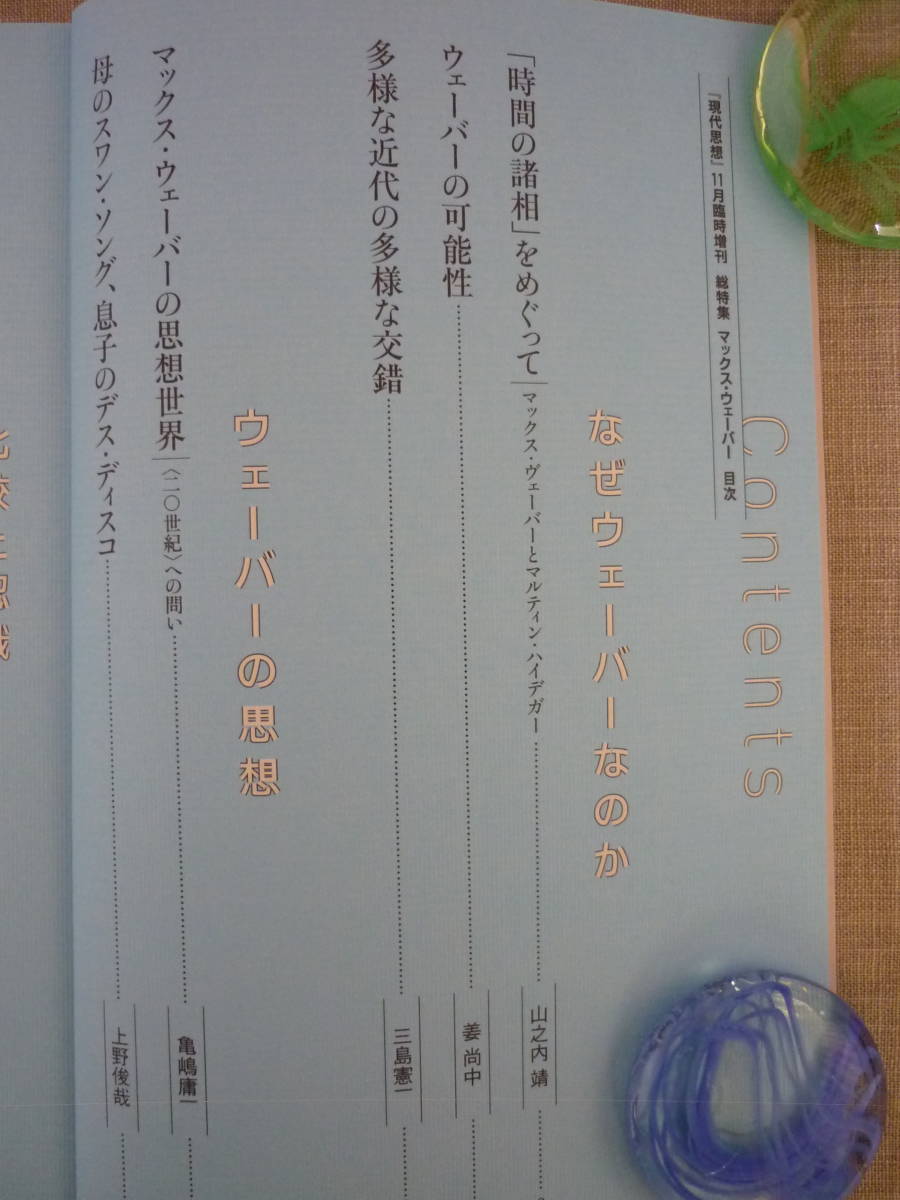 Contents
『現代思想』11月臨時増刊 総特集 マックス・ウェーバー 目次
なぜウェーバーなのか
「時間の諸相」をめぐって マックス・ヴェーバーとマルティン・ハイデガー 山之内 靖
ウェーバーの可能性 姜 尚中
多様な近代の多様な交錯 三島憲一
ウェーバーの思想
マックス・ウェーバーの思想世界 〈二〇世紀〉への問い 亀嶋庸一
母のスワン・ソング、息子のデス・ディスコ 上野俊哉